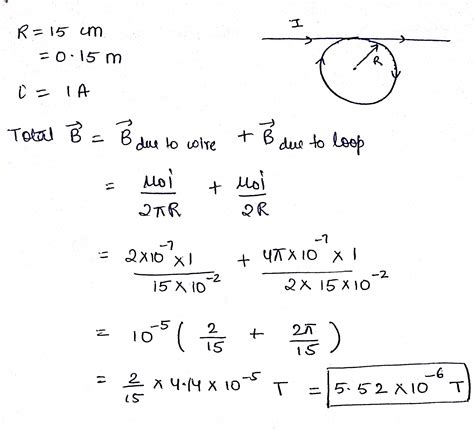 R = 15 cm
= 0.15 m
i = 1 A
I
R
Total B⃗ = B⃗ due to wire + B⃗ due to loop
= μ₀i / 2πR + μ₀i / 2R
= 2×10⁻⁷×1 / 15×10⁻² + 4π×10⁻⁷×1 / 2×15×10⁻²
= 10⁻⁵ ( 2/15 + 2π/15 )
= 2/15 × 4.14 × 10⁻⁵ T = 5.52 × 10⁻⁶ T